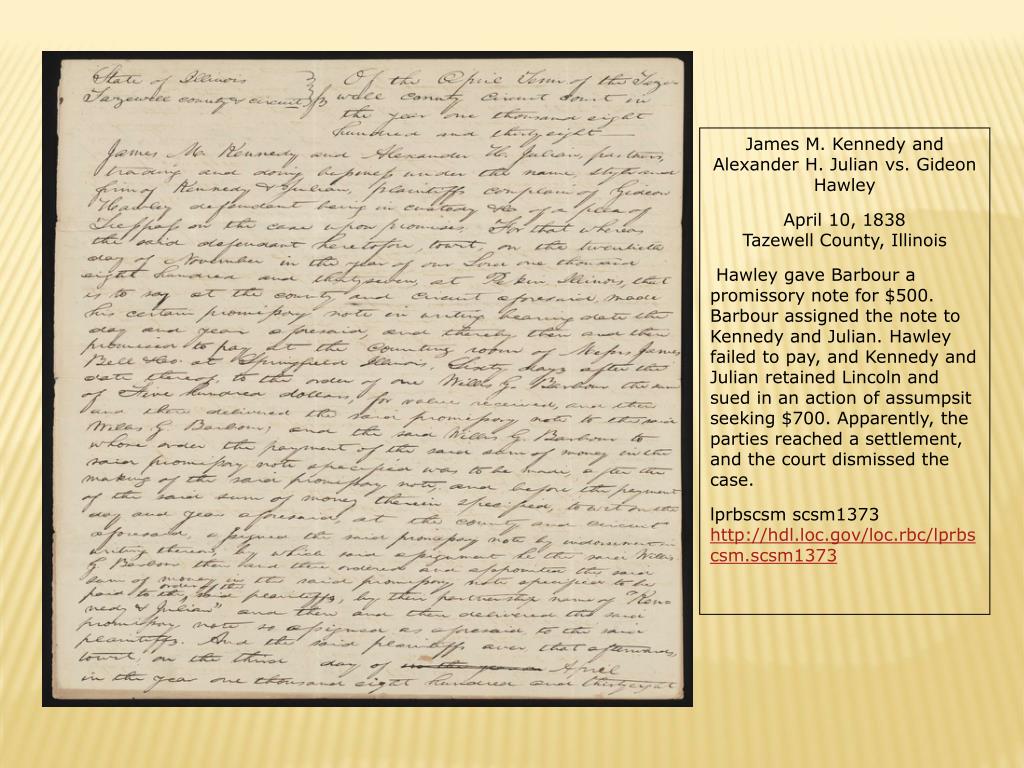 State of Illinois
Tazewell county & circuit
Of the April Term of the Taze-
well county circuit court in
the year one thousand eight
hundred and thirtyeight
James M. Kennedy and Alexander H. Julian, partners,
trading and doing business under the name, style and
firm of Kennedy & Julian, plaintiffs complain of Gideon
Hawley defendant being in custody &c of a plea of
Trespass on the case upon promises. For that whereas
the said defendant heretofore, towit, on the twentieth
day of November in the year of our Lord one thousand
eight hundred and thirtyseven, at Pekin Illinois, that
is to say at the county and circuit aforesaid, made
his certain promissory note in writing bearing date the
day and year aforesaid, and thereby then and there
promised to pay at the counting room of Messrs James
Bell &Co. at Springfield Illinois, Sixty days after the
date thereof, to the order of one Willis G. Barbour the sum
of Five hundred dollars, for value received, and then
and there delivered the said promissory note to the said
Willis G. Barbour, and the said Willis G. Barbour to
whose order the payment of the said sum of money in the
said promissory note specified was to be made, after the
making of the said promissory note, and before the payment
of the said sum of money therein specified, to wit on the
day and year aforesaid, at the county and circuit
aforesaid, assigned the said promissory note by indorsement in
writing thereon, by which said assignment he the said Willis
G. Barbour then and there ordered and appointed the said
sum of money in the said promissory note specified to be
paid to the order of the said plaintiffs, by their partnership name of "Ken-
nedy & Julian" and then and there delivered the said
promissory note so assigned as aforesaid, to the said
plaintiffs. And the said plaintiffs aver, that afterwards,
towit, on the third day of April
in the year one thousand eight hundred and thirtyeight
James M. Kennedy and
Alexander H. Julian vs. Gideon
Hawley
April 10, 1838
Tazewell County, Illinois
Hawley gave Barbour a
promissory note for $500.
Barbour assigned the note to
Kennedy and Julian. Hawley
failed to pay, and Kennedy and
Julian retained Lincoln and
sued in an action of assumpsit
seeking $700. Apparently, the
parties reached a settlement,
and the court dismissed the
case.
lprbscsm scsm1373
http://hdl.loc.gov/loc.rbc/lprbs
csm.scsm1373